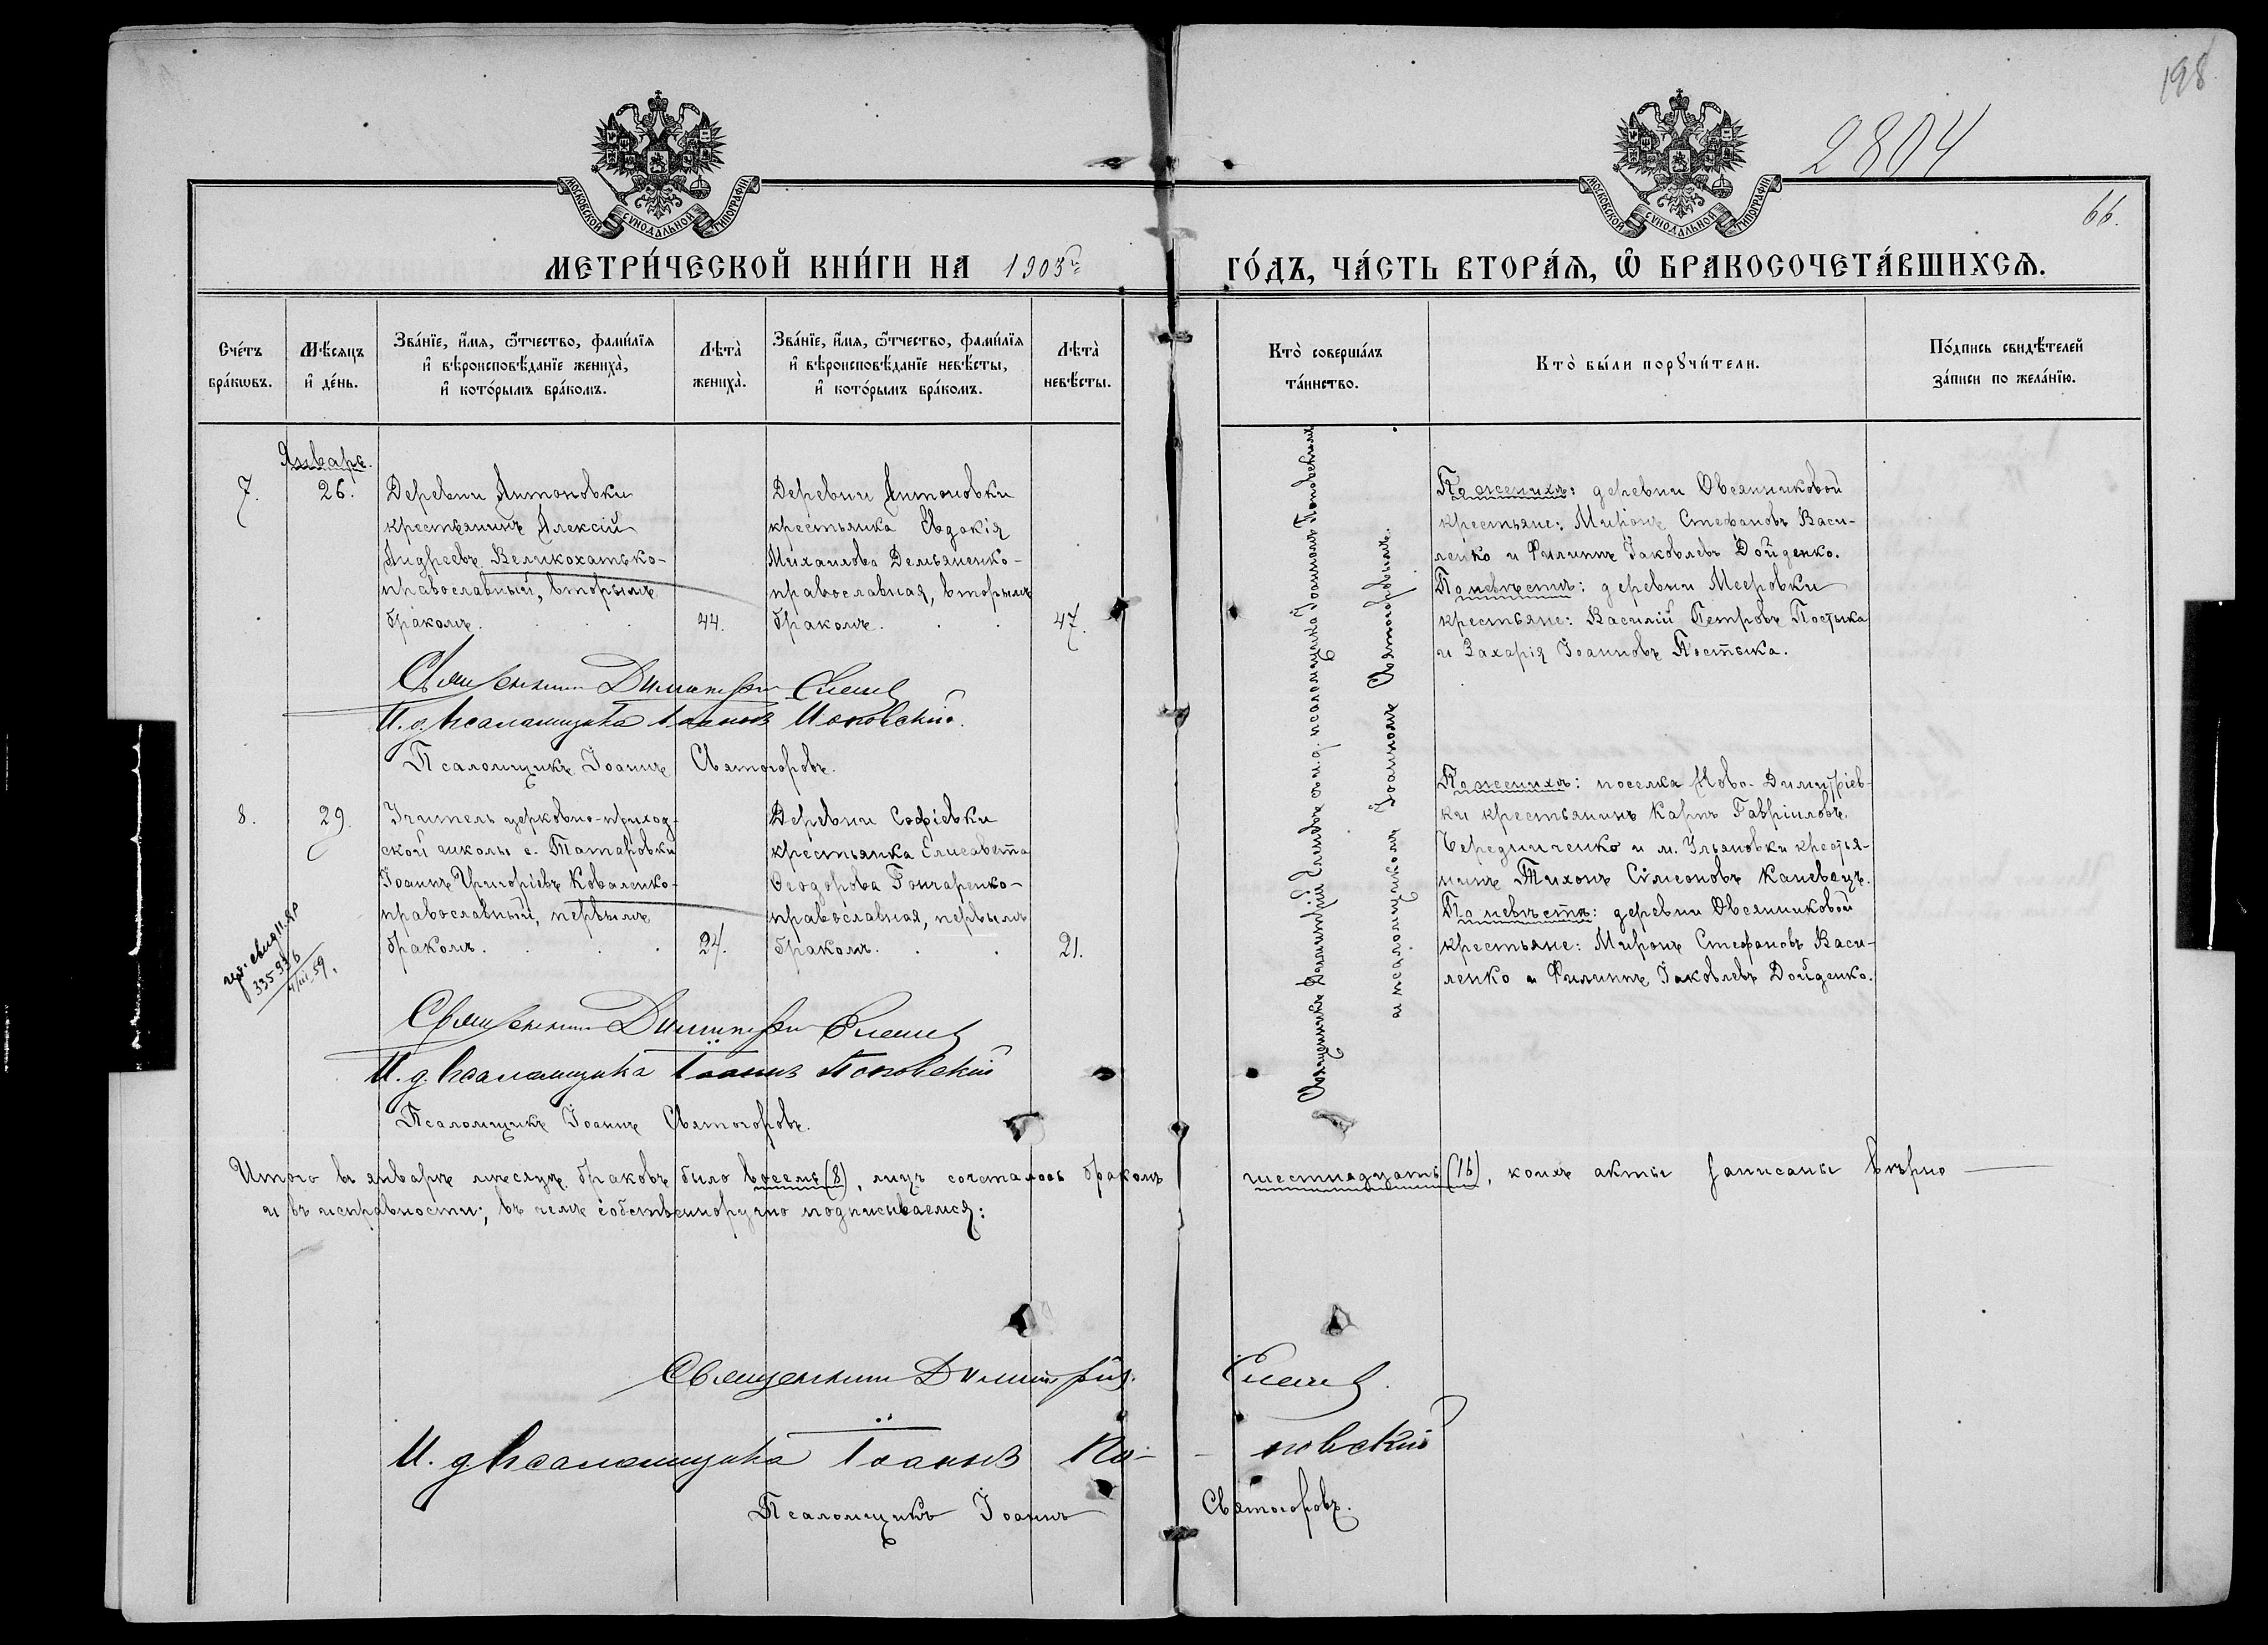 198
2804
66.
МОСКОВСКОЙ СѴНОДАЛЬНОЙ ТИПОГРАФІИ
МОСКОВСКОЙ СѴНОДАЛЬНОЙ ТИПОГРАФІИ
МЕТРИ́ЧЕСКОЙ КНИ́ГИ НА 1903й ГО́ДЪ, ЧА́СТЬ ВТОРА́Ѧ, Ѡ҆ БРАКОСОЧЕТА́ВШИХСѦ.
Сче́тъ бра́кѡвъ.
Мѣ́сяцъ и҆ де́нь.
Зва́нїе, и҆́мя, ѻ҆́тчество, фами́лїя
и҆ вѣроисповѣ́данїе жениха̀,
и҆ кото́рымъ бра́комъ.
Лѣта̀ жениха̀.
Зва́нїе, и҆́мя, ѻ҆́тчество, фами́лїя
и҆ вѣроисповѣ́данїе невѣ́сты,
и҆ кото́рымъ бра́комъ.
Лѣта̀ невѣ́сты.
Кто̀ соверша́лъ та́инство.
Кто̀ бы́ли порꙋчи́тели.
По́дпись свидѣ́телей за́писи по жела́нїю.
Январь.
7.
26.
Деревни Антоновки
крестьянинъ Алексій
Андреевъ Великохатько-
православный, вторымъ
бракомъ.
44.
Деревни Антоновки
крестьянка Евдокія
Михаилова Демьяненко-
православная, вторымъ
бракомъ.
47.
Священникъ Димитрій Еленевъ и и. д. псаломщика Іоаннъ Поповскій
и псаломщикомъ Іоанномъ Святогоровымъ.
По женихѣ: деревни Овсянниковой
крестьяне: Миронъ Стефановъ Васи-
ленко и Филиппъ Іаковлевъ Дойденко.
По невѣстѣ: деревни Мееровки
крестьяне: Василій Петровъ Постыка
и Захарія Іоанновъ Постыка.
Священникъ Димитрій Еленевъ
И. д. псаломщика Іоаннъ Поповскій.
Псаломщикъ Іоаннъ Святогоровъ.
8.
29.
Учитель церковно-приход-
ской школы с. Татаровки
Іоаннъ Григоріевъ Коваленко-
православный, первымъ
бракомъ.
24.
Деревни Софіевки
крестьянка Елисавета
Ѳеодорова Гончаренко-
православная, первымъ
бракомъ.
21.
По женихѣ: поселка Ново-Димитріев-
ки крестьянинъ Карпъ Гавріиловъ
Чередниченко и м. Ульяновки крестья-
нинъ Тихонъ Сѵмеоновъ Каневецъ.
По невѣстѣ: деревни Овсянниковой
крестьяне: Миронъ Стефановъ Васи-
ленко и Филиппъ Іаковлевъ Дойденко.
335936
4/III 59.
Священникъ Димитрій Еленевъ
И. д. псаломщика Іоаннъ Поповскій
Псаломщикъ Іоаннъ Святогоровъ.
Итого въ январѣ мѣсяцѣ браковъ было восемь (8), лицъ сочеталось бракомъ шестнадцать (16), коихъ акты записаны вѣрно
и въ исправности; въ чемъ собственноручно подписываемся:
Священникъ Димитрій Еленевъ.
И. д. псаломщика Іоаннъ По- повскій
Псаломщикъ Іоаннъ Святогоровъ.